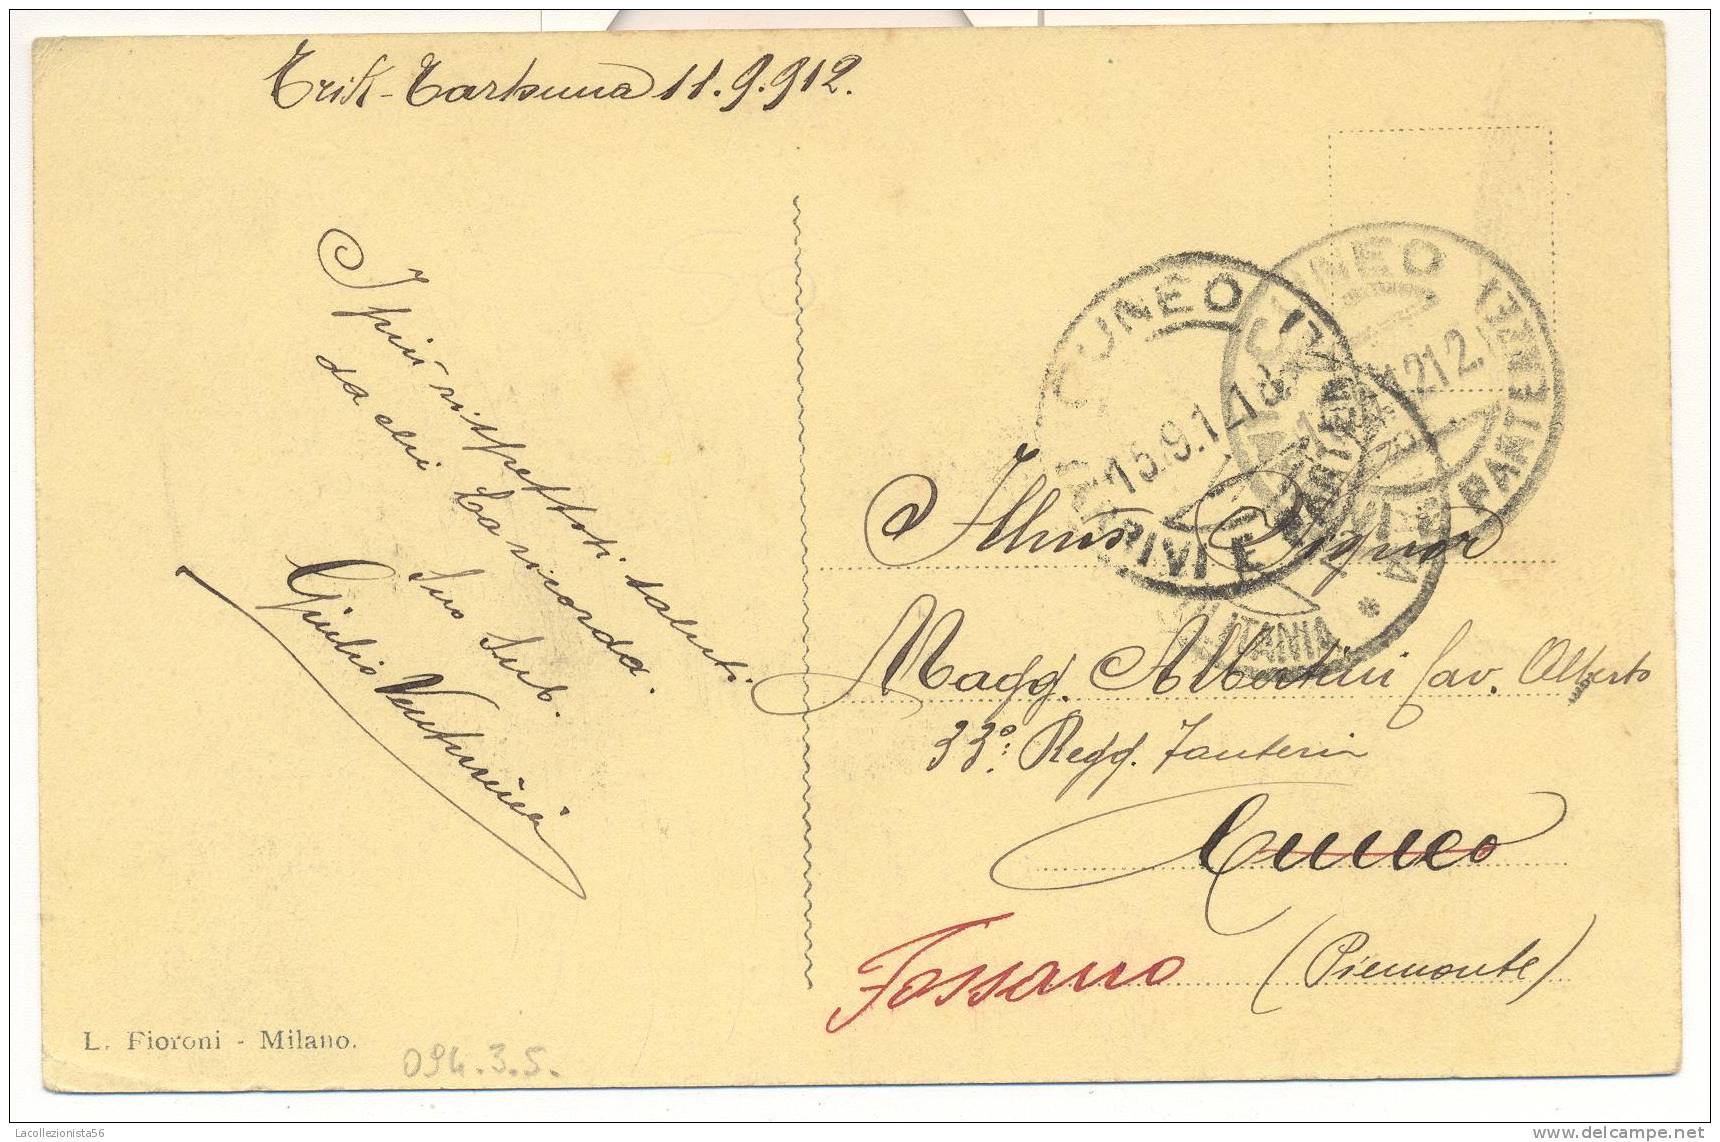 Trik-Tarhuna 11.9.912.
I più rispettosi saluti
da chi La ricorda.
Suo Sub.
Giulio Venturini
CUNEO
15.9.12.18
ARRIVI E PARTENZE
CUNEO
1212
PARTENZE
TRIPOLITANIA
Illmo Signor
Magg. Albertini Cav. Alberto
33º Regg. Fanteria
Cuneo
Fossano (Piemonte)
L. Fioroni - Milano.
094.3.5.
Lacollezionista56
delcampe.net